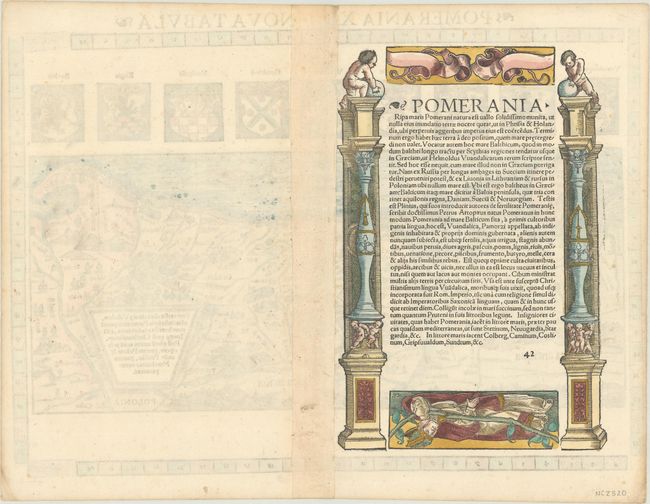 POMERANIA
Ripa maris Pomerani natura est uallo solidissimo munita, ut
nulla eius inundatio terræ nocere queat, ut in Phrisia & Holan-
dia, ubi perpetuis aggeribus impetus eius est coërcẽdus. Termi-
num ergo habet hæc terra à deo positum, quem mare prætergre-
di non ualet. Vocatur autem hoc mare Balthicum, quod in mo-
dum balthei longo tractu per Scythias regiones tendatur usque
in Græciam, ut Helmoldus Vuandalicarum rerum scriptor sen-
tit. Sed hoc esse nequit, cum mare illud non in Græciam porriga-
tur. Nam ex Russia per longas ambages in Sueciam itinere pe-
destri perueniri potest, & ex Liuonia in Lithuaniam & rursus in
Poloniam ubi nullum mare est. Vbi est ergo baltheus in Græci-
am: Balticum itaque mare dicitur à Baltia peninsula, quæ tria con-
tinet aquilonis regna, Daniam, Sueciã & Noruegium. Testis
est Plinius, qui suos introducit autores de fertilitate Pomeraniæ,
scribit doctissimus Petrus Artopœus natus Pomeranus in hunc
modum. Pomerania ad mare Balthicum sita, à primis cultoribus
patria lingua, hoc est, Vuandalica, Pamorzi appellata, ab indi-
genis inhabitata & proprijs dominis gubernata, alienis autem
nunquam subiecta, est ubique fertilis, aquis irrigua, stagnis abun-
dãs, nauibus peruia, diues agris, pascuis, pomis, lignis, riuis, mõ-
tibus, uenatione, pecore, piscibus, frumento, butyro, melle, cera
& alijs his similibus rebus. Est quoque optime culta ciuitatibus,
oppidis, arcibus & uicis, nec ullus in ea est locus uacuus et incul-
tus, nisi quem aut lacus aut montes occupant. Cibum ministrat
multis alijs terris per circuitum sitis. Vsa est ante susceptũ Chri-
stianismum lingua Vuãdalica, moribusque suis uixit, quoad usque
incorporata fuit Rom. Imperio, sic unà cum religione simul di-
dicit ab Imperatoribus Saxonicã linguam, quam & in hunc us-
que retinet diem. Colligũt incolæ in mari succinum, sed non tan-
tum quantum Pruteni in suis littoribus legunt. Insigniores ci-
uitates, quas habet Pomerania, iacẽt in littore maris, præter pau-
cas quasdam mediterraneas, ut sunt Stetinum, Neuugardia, Star-
gardia, &c. In littore maris iacent Colberg, Caminum, Cosli-
num, Gripsuualdum, Sundum, &c.
42
NCZ820